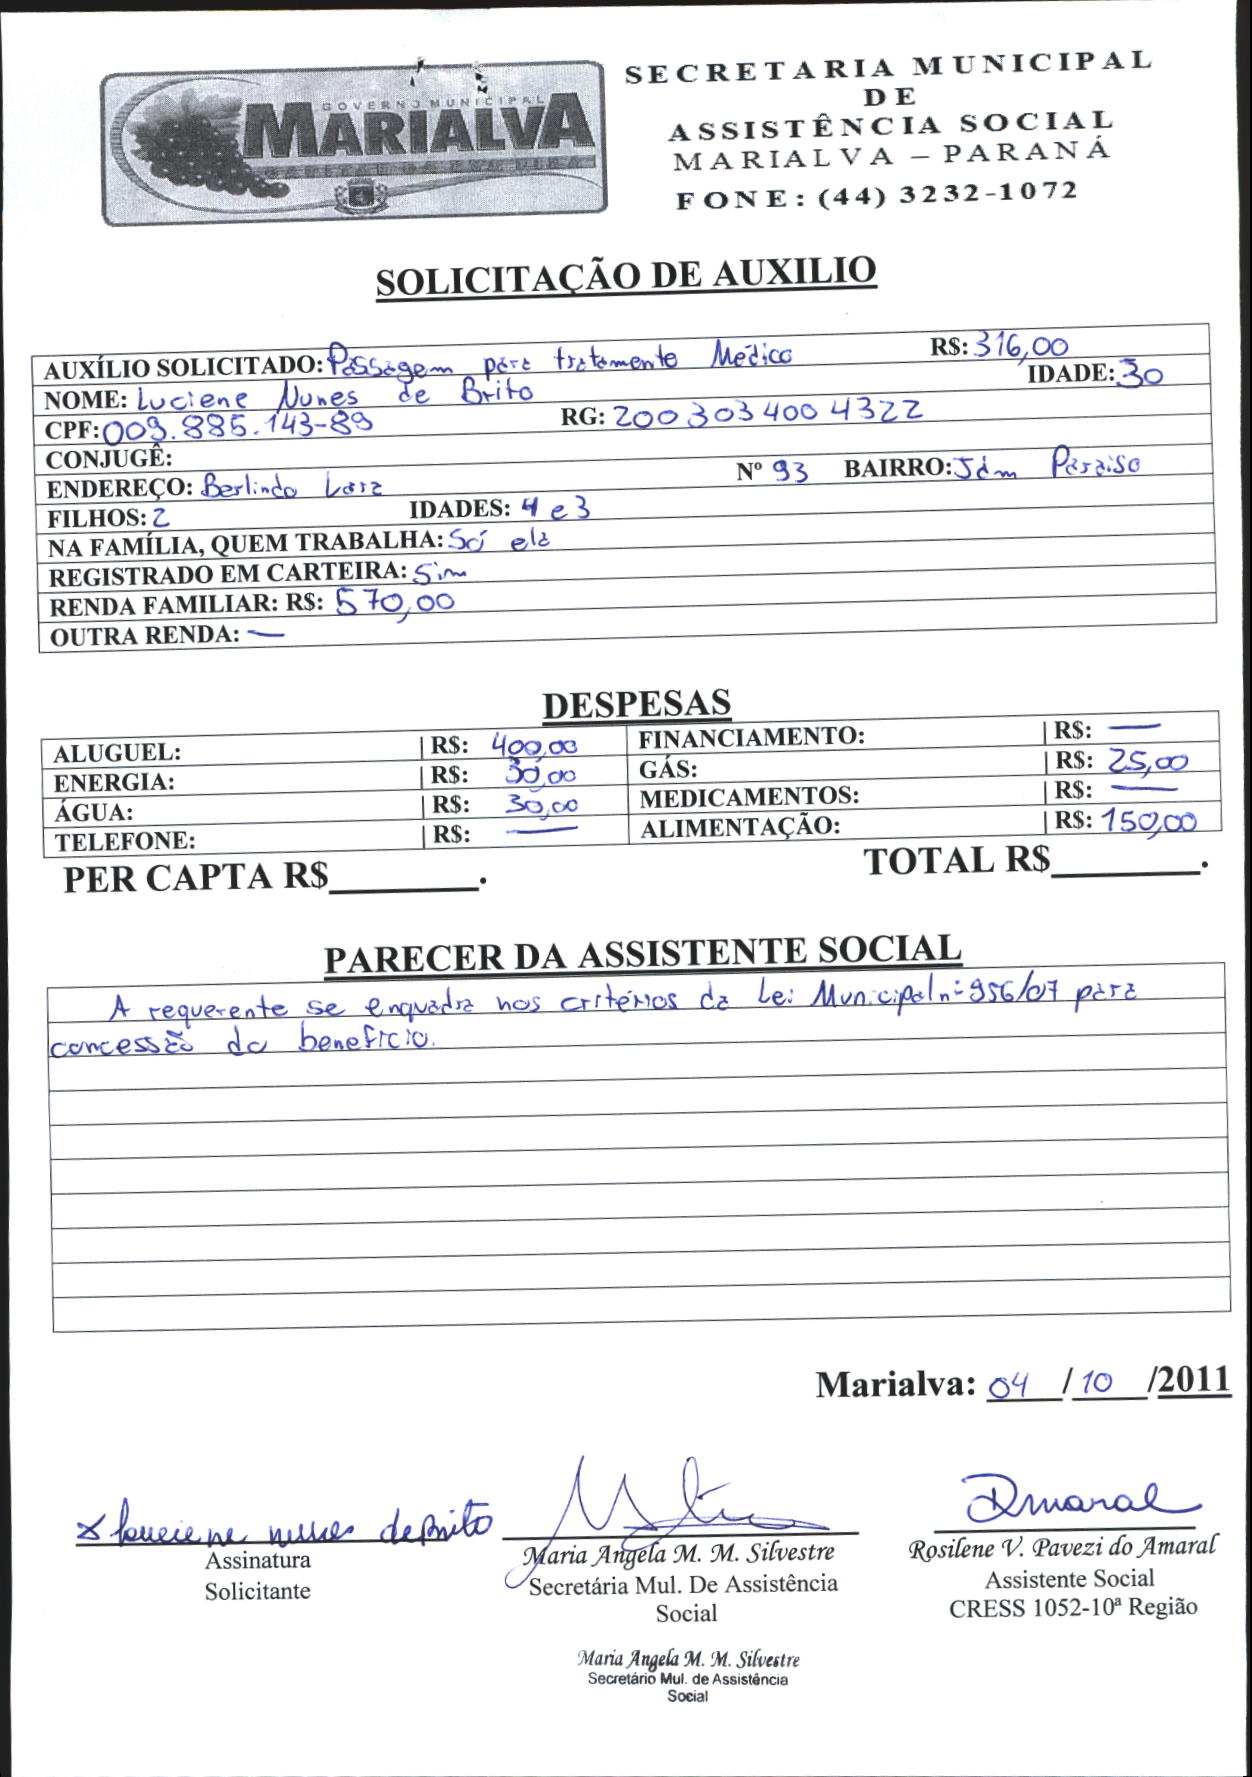 GOVERNO MUNICIPAL
MARIALVA
CAPITAL DA UVA FINA
SECRETARIA MUNICIPAL
DE
ASSISTÊNCIA SOCIAL
MARIALVA – PARANÁ
FONE: (44) 3232-1072
SOLICITAÇÃO DE AUXILIO
AUXÍLIO SOLICITADO: Passagem para tratamento Médico R$: 316,00
NOME: Luciene Nunes de Brito IDADE: 30
CPF: 009.885.143-89 RG: 2003034004322
CONJUGÊ:
ENDEREÇO: Berlindo Lara Nº 93 BAIRRO: Jdm Paraiso
FILHOS: 2 IDADES: 4 e 3
NA FAMÍLIA, QUEM TRABALHA: Só ela
REGISTRADO EM CARTEIRA: Sim
RENDA FAMILIAR: R$: 570,00
OUTRA RENDA: —
DESPESAS
ALUGUEL: | R$: 400,00 FINANCIAMENTO: | R$: —
ENERGIA: | R$: 30,00 GÁS: | R$: 25,00
ÁGUA: | R$: 30,00 MEDICAMENTOS: | R$: —
TELEFONE: | R$: — ALIMENTAÇÃO: | R$: 150,00
PER CAPTA R$________. TOTAL R$________.
PARECER DA ASSISTENTE SOCIAL
A requerente se enquadra nos critérios da Lei Municipal nº 956/07 para
concessão do benefício.
Marialva: 04 / 10 /2011
x Luciene nunes deBrito
Assinatura
Solicitante
Maria Angela M. M. Silvestre
Secretária Mul. De Assistência
Social
Maria Angela M. M. Silvestre
Secretário Mul. de Assistência
Social
Amaral
Rosilene V. Pavezi do Amaral
Assistente Social
CRESS 1052-10ª Região